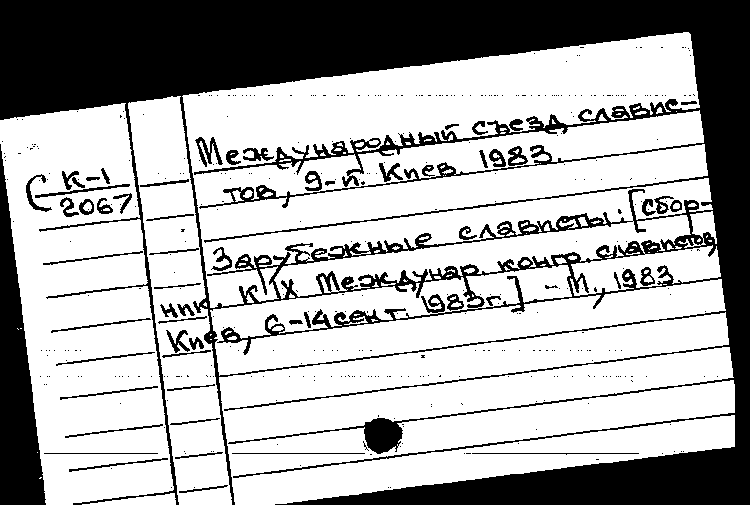 Международный съезд славис-
тов, 9-й. Киев. 1983.
С К-1
2067
Зарубежные слависты: [сбор-
ник. К IX Междунар. конгр. славистов,
Киев, 6-14 сент. 1983г.]. - М., 1983.